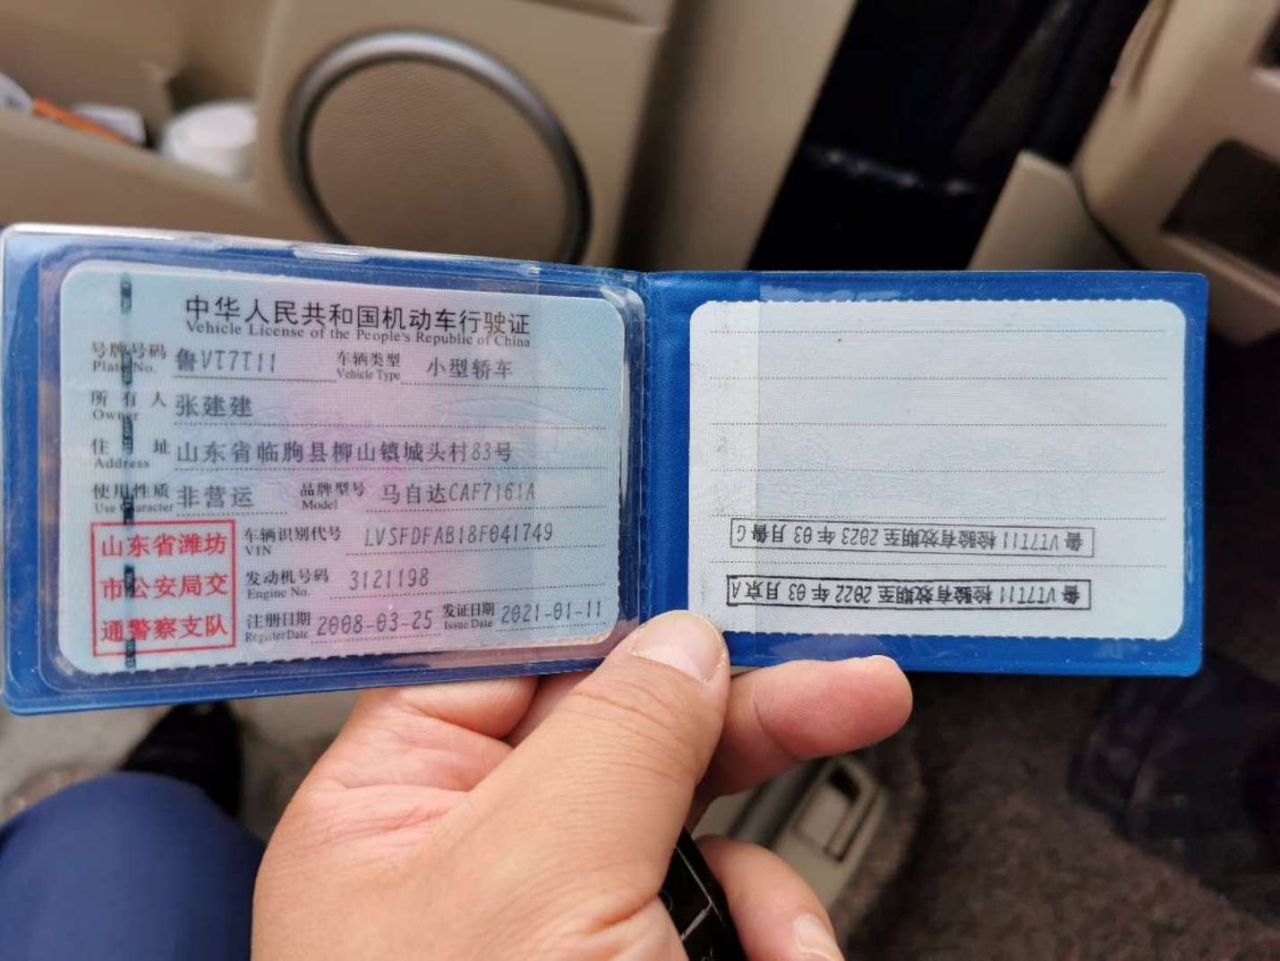 中华人民共和国机动车行驶证
Vehicle License of the People's Republic of China
号牌号码 鲁VT7T11 车辆类型 小型轿车
Plate No. Vehicle Type
所有人 张建建
Owner
住址 山东省临朐县柳山镇城头村83号
Address
使用性质 非营运 品牌型号 马自达CAF7161A
Use Character Model
山东省潍坊
市公安局交
通警察支队
车辆识别代号 LVSFDFAB18F041749
VIN
发动机号码 3121198
Engine No.
注册日期 2008-03-25 发证日期 2021-01-11
Register Date Issue Date
鲁VT7T11 检验有效期至 2022年03月京A
鲁VT7T11 检验有效期至 2023年03月鲁G